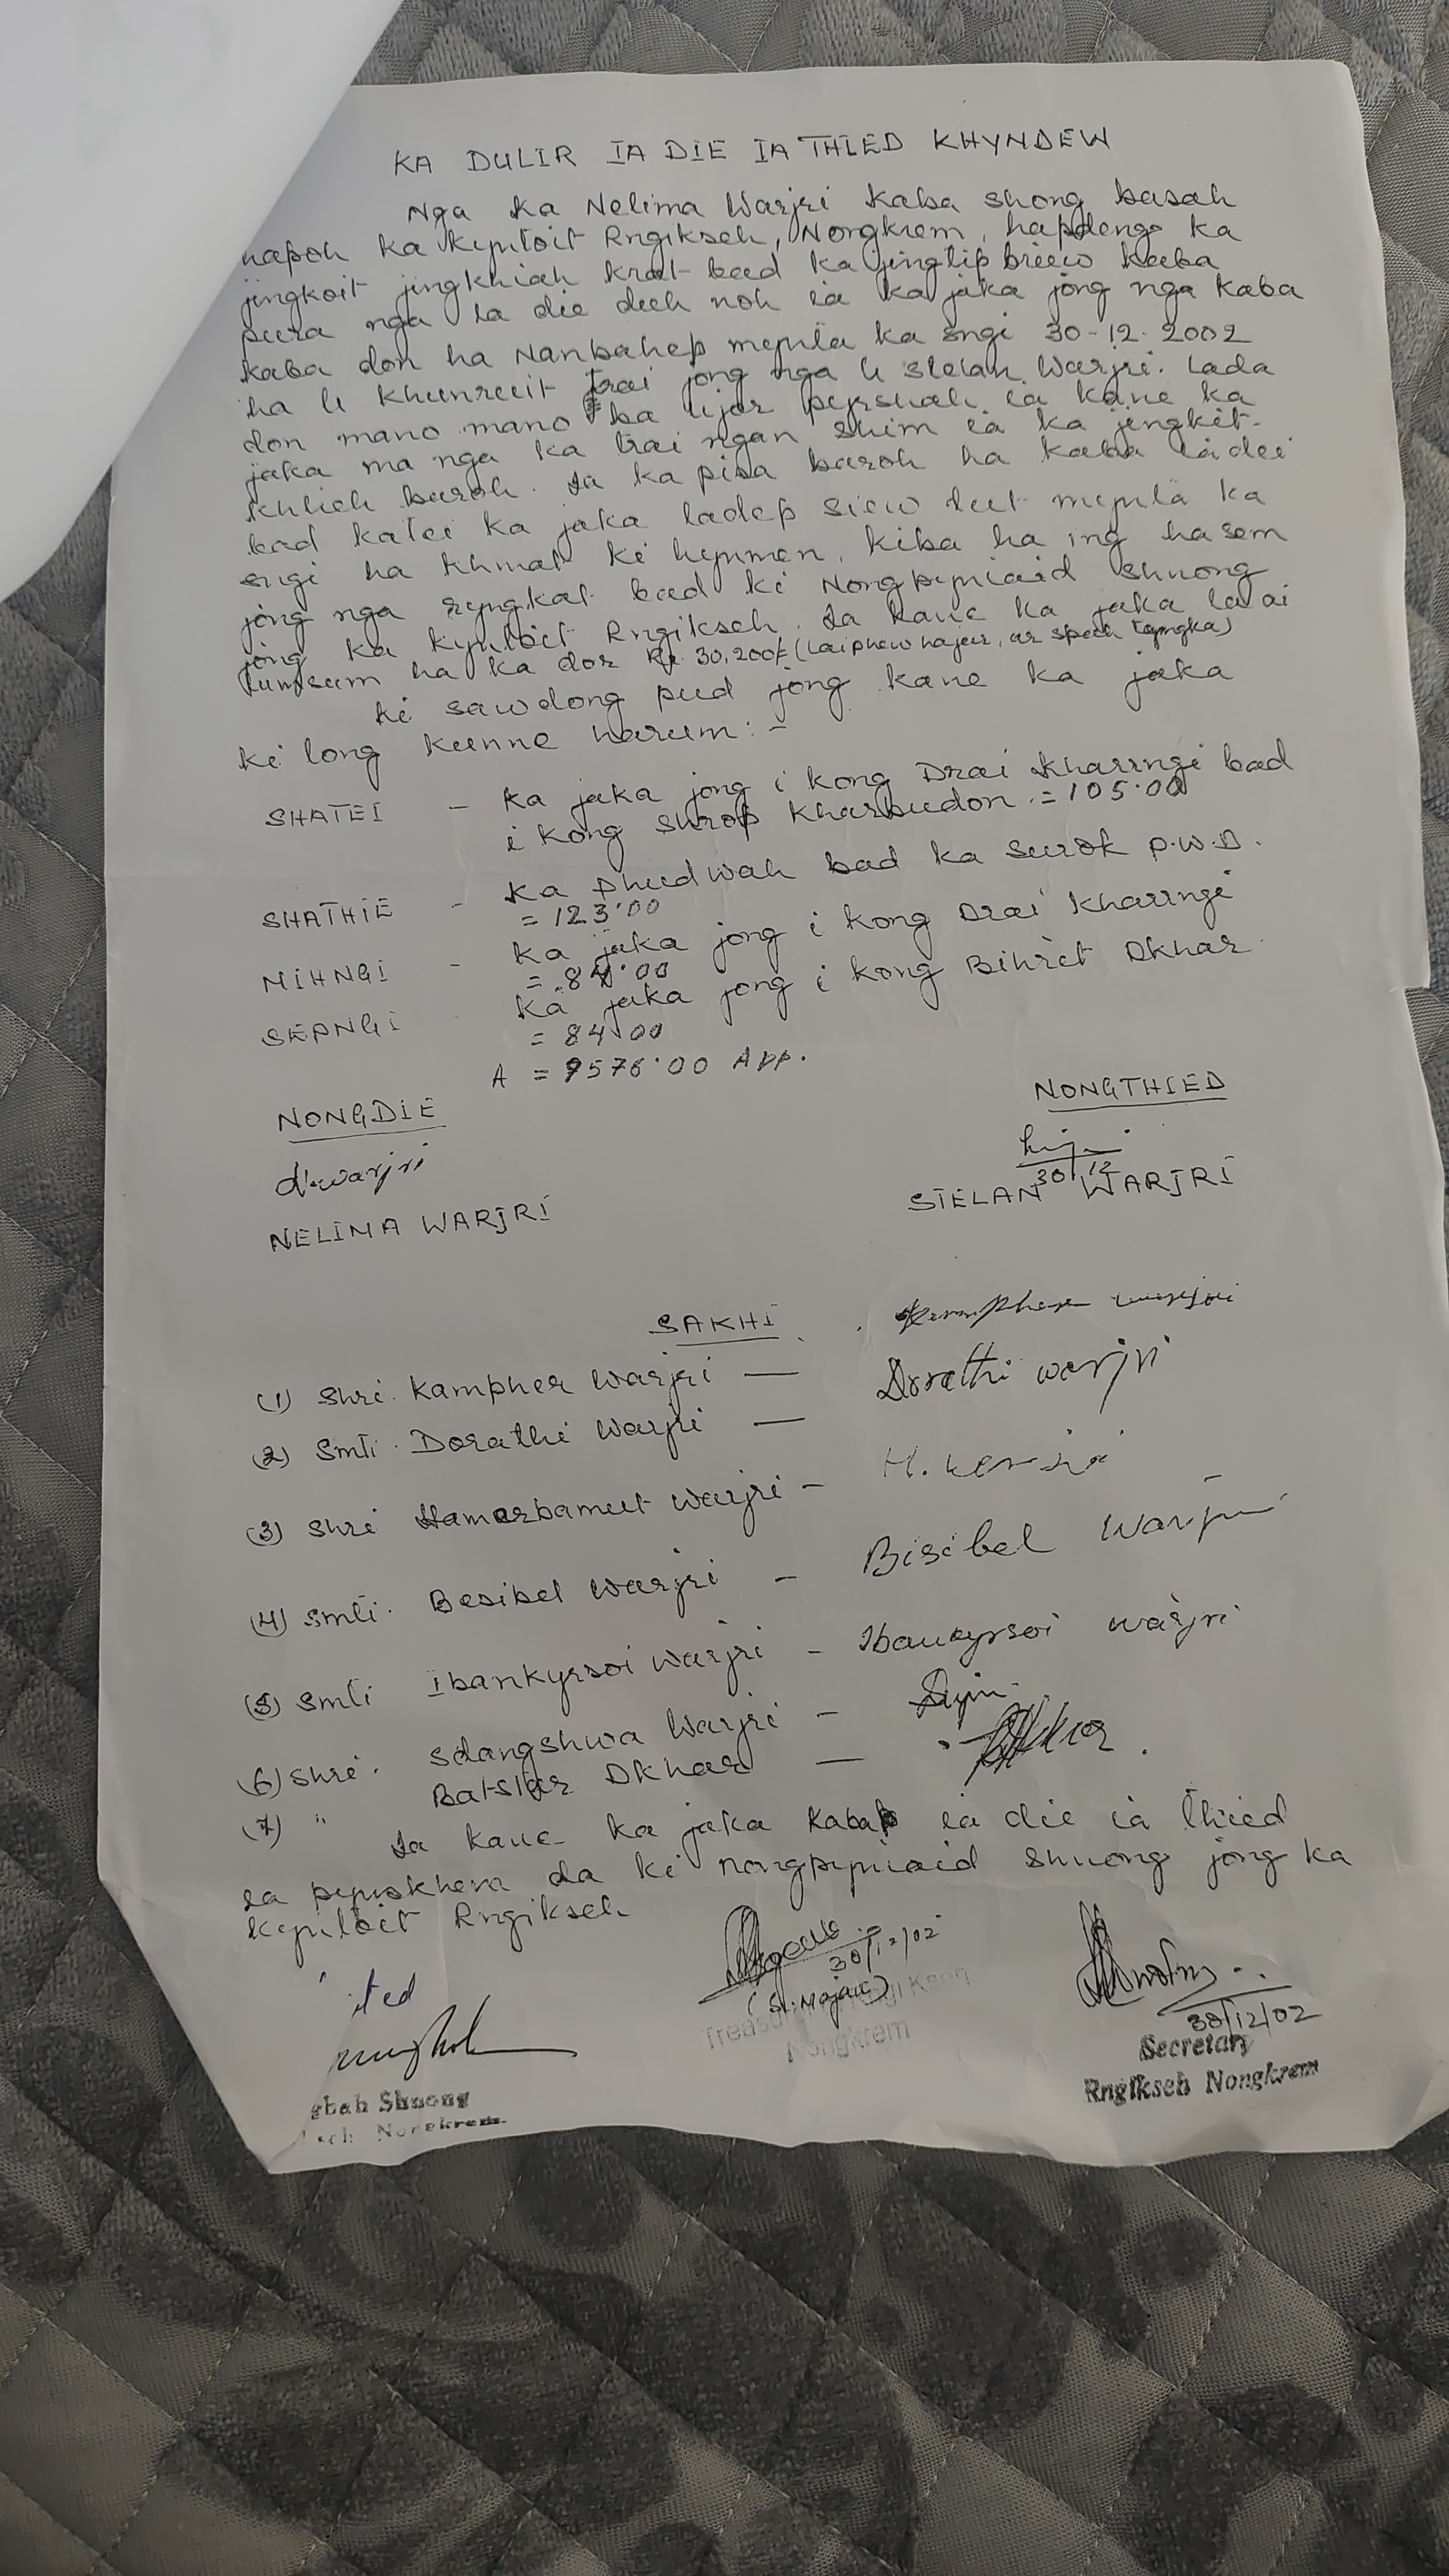 KA DULIR IA DIE IA THIED KHYNDEW
Nga ka Nelima Warjri kaba shong basah
hapoh ka Kyntoit Rngikseh, Nongkrem, hapdeng ka
jingkoit jingkhiah krat bad ka jingtip briew kaba
pura nga la die duh noh ia ka jaka jong nga kaba
kaba don ha Nanbahep mynta ka sngi 30-12-2002
ha u khunruit trai jong nga u Stelan Warjri. Lada
don mano mano ba ujor pyrshah ia kane ka
jaka ma nga ka trai ngan shim ia ka jingkit-
khlieh baroh. Ia ka pisa baroh ha kaba iadei
bad katei ka jaka ladep siew lut mynta ka
sngi ha khmat ki hynmen, kiba ha ing hasem
jong nga ryngkat bad ki Nongpyniaid shnong
jong ka Kyntoit Rngikseh. Ia kane ka jaka la ai
lumsum ha ka dor Rs. 30,200/- (Laiphew hajar, ar spah tyngka)
ki sawdong pud jong kane ka jaka
ki long kumne harum:-
SHATEI - Ka jaka jong i kong Drai Kharrngi bad
i kong Shrop Kharbudon = 105.00
SHATHIE - Ka Phudwah bad ka surok P.W.D.
= 123.00
MIHNGI - Ka jaka jong i kong Drai Kharrngi
= 84.00
SEPNGI - Ka jaka jong i kong Bihret Dkhar
= 84.00
A = 9576.00 App.
NONGDIE NONGTHIED
30/12
NELIMA WARJRI STELAN WARJRI
SAKHI
(1) Shri. Kampher Warjri — Kampher Warjri
(2) Smti. Dorathi Warjri — Dorathi Warjri
(3) Shri Hamarbamut Warjri -
(4) Smti. Besibel Warjri - Bisibel Warjri
(5) Smti Ibankyrsoi Warjri - Ibankyrsoi Warjri
(6) Shri. Sdangshwa Warjri -
(7) " Batstar Dkhar —
Ia kane ka jaka kaba ia die ia thied
la pynskhem da ki nongpyniaid shnong jong ka
Kyntoit Rngikseh
30/12/02
30/12/02
Treasurer
Nongkrem
Secretary
Rngikseh Nongkrem
gbah Shnong
Nongkrem.